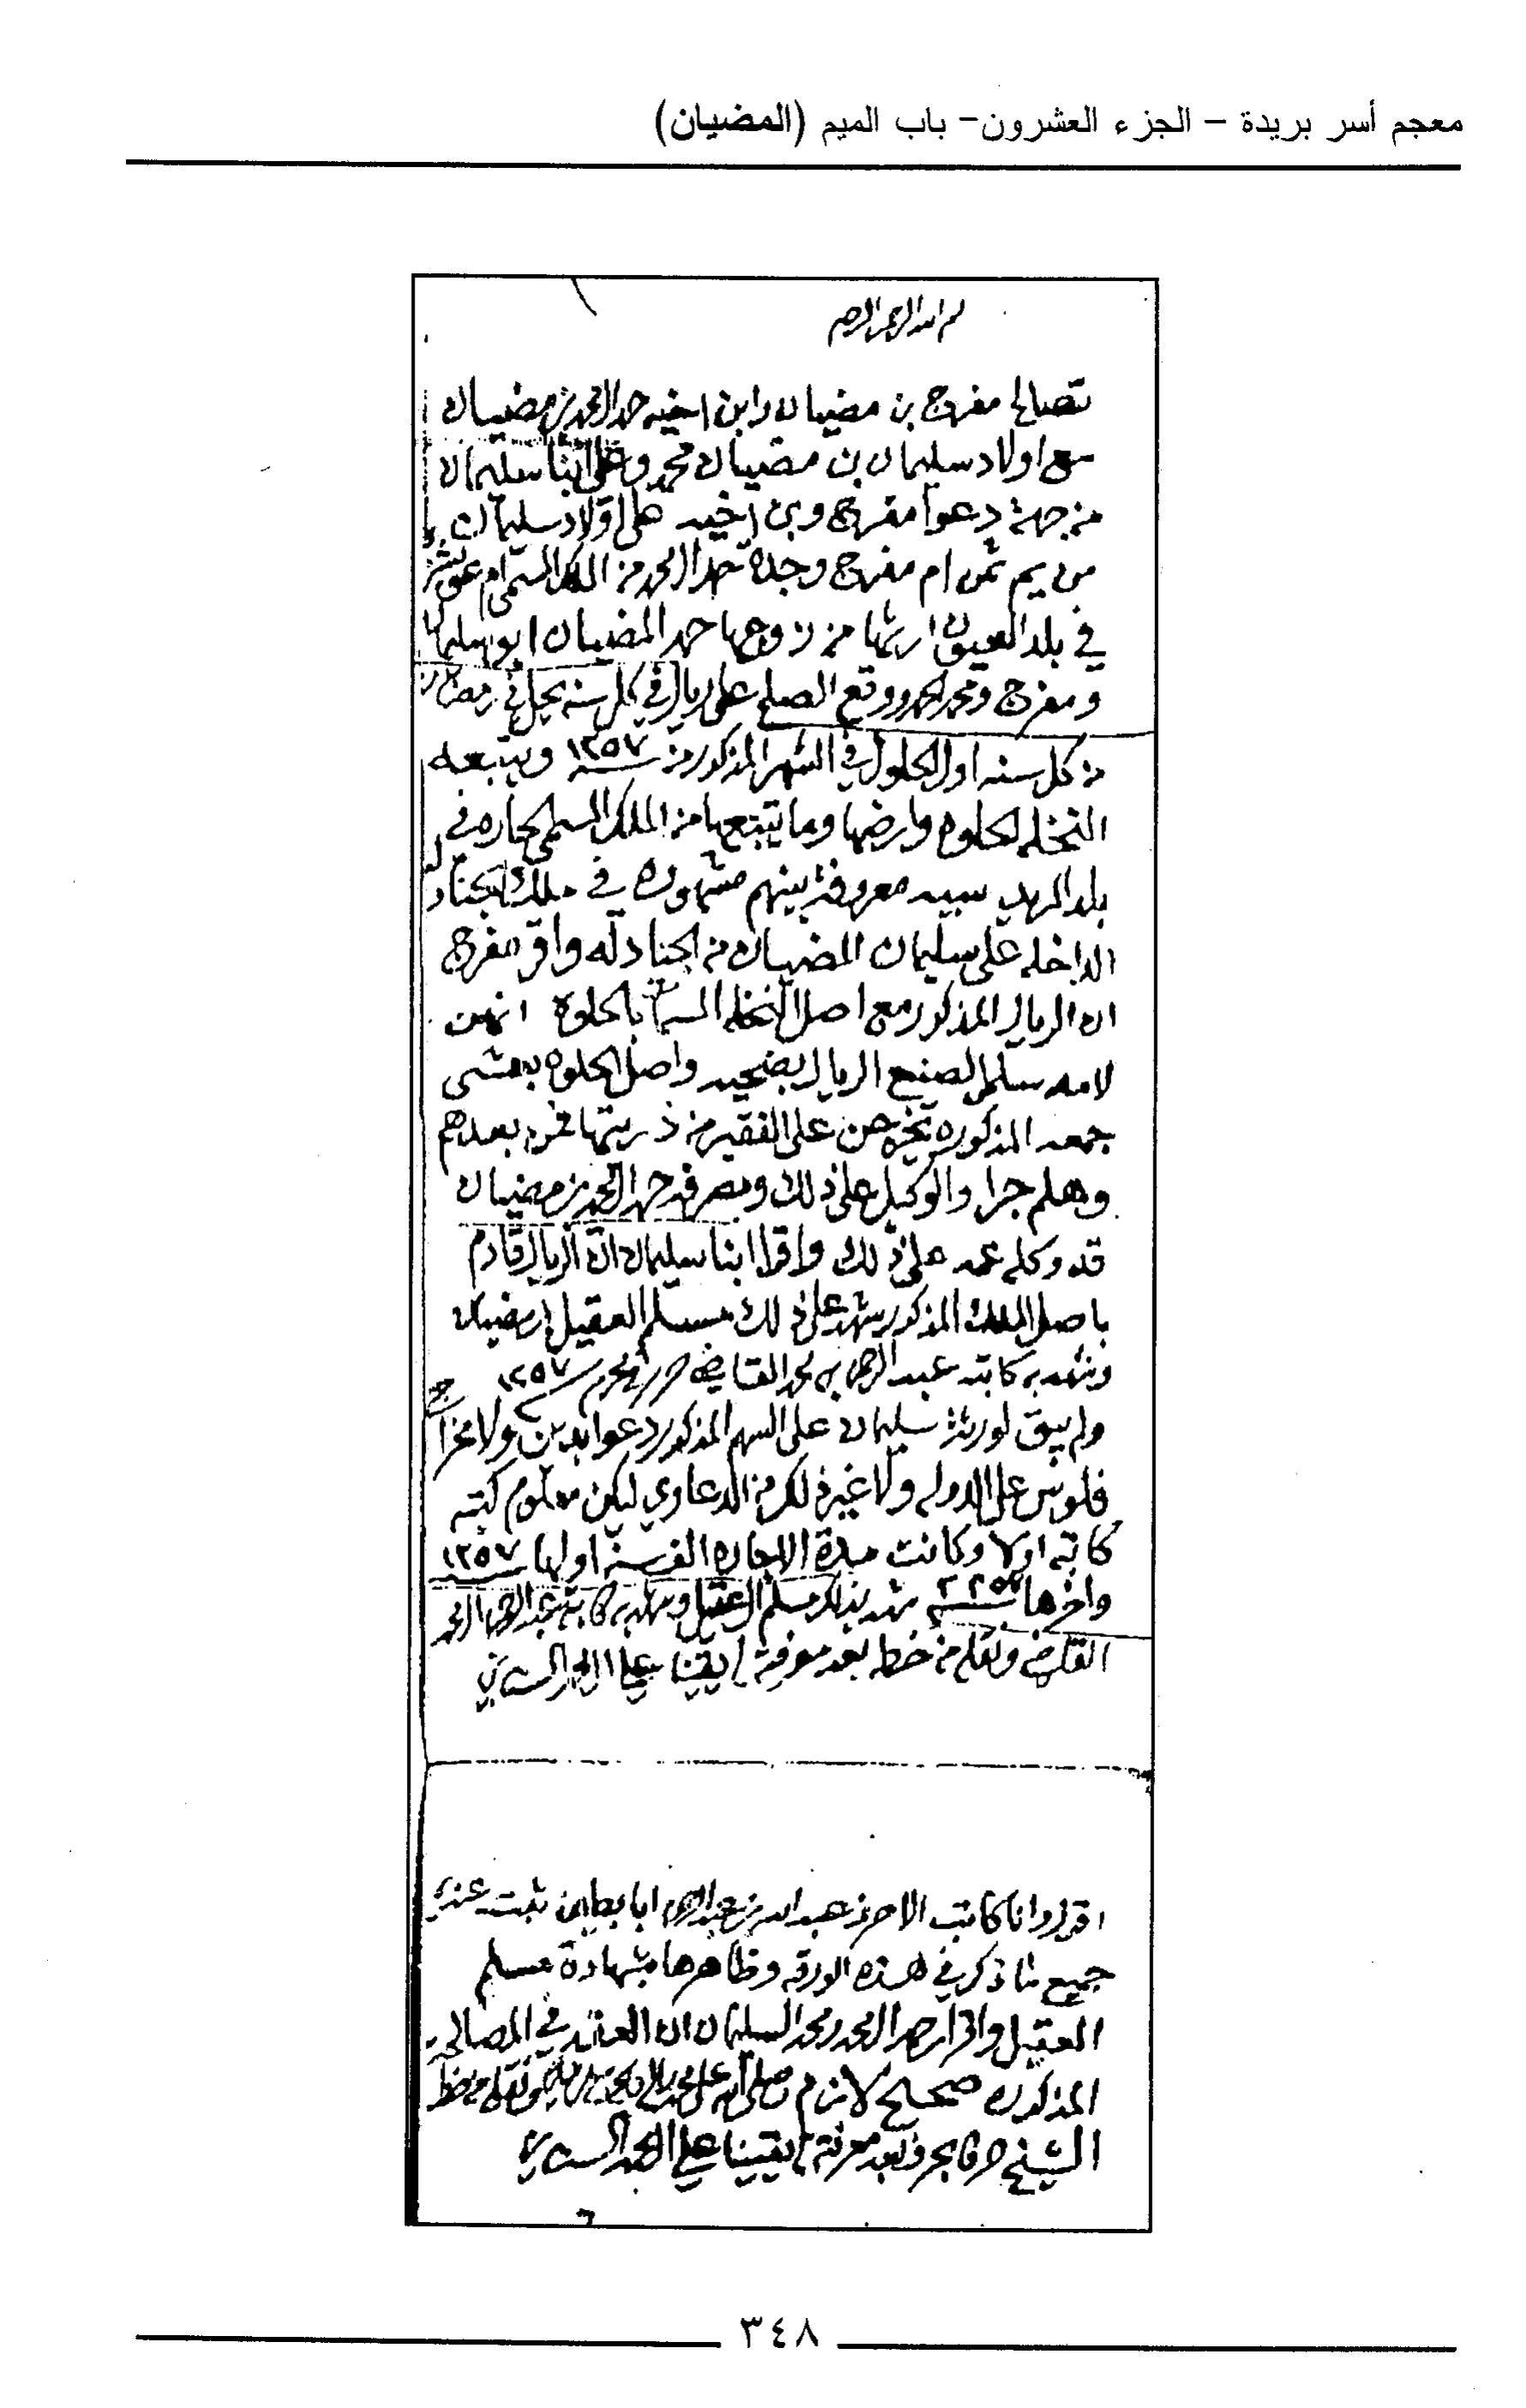 معجم أسر بريدة – الجزء العشرون– باب الميم (المضيان)
بسم الله الرحمن الرحيم
تصالح مفرج بن مضيان وابن اخيه حمد المحمد بن مضيان
مع اولاد سليمان بن مضيان محمد وعلي ابنا سليمان
من جهة دعوا مفرج وبن اخيه على اولاد سليمان
من يم ثمن ام مفرج وجدة حمد المحمد من الملك المسمى ام
في بلد العيون ارثها من زوجها حمد المضيان ابو سليمان
ومفرج ومحمد الحمد ووقع الصلح على ريال في كل سنه يحل في رمضان
من كل سنه اول الحلول في الشهر المذكور من سنة ١٢٥٧ ويتبعه
النخله الحلوه وارضها وما يتبعها من الملك المسمى في
بلد سبيه معروفة بينهم مشهوره في ملك الجنادله
الداخله على سليمان المضيان من الجنادله واقر مفرج
ان الريال المذكور مع اصل النخله المسماة بالحلوة انهن
لامه سلمى الصنيع الريال بضحيه واصل الحلوه بعشى
جمعه المذكوره يخرجن على الفقير من ذريتها فمن بعدهم
وهلم جرا والوكيل على ذلك ومصرفه حمد المحمد بن مضيان
قد وكله عمه على ذلك واقرا ابنا سليمان ان الريال قادم
باصل الملك المذكور شهد على ذلك مسلم العقيل بن مضيان
وشهد به كاتبه عبد الرحمن بن محمد القاضي حرر في محرم سنة ١٢٥٧
ولم يبق لورثة سليمان على السهم المذكور دعوا بدين ولا
فلوس على الدوله ولا غير ذلك من الدعاوي ليكن معلوم كتبه
كاتبه اولا وكانت مدة الاجاره الف سنة اولها سنة ١٢٥٧
واخرها سنة ٢٢٥٧ شهد بذلك مسلم العقيل وشهد به كاتبه عبد الرحمن المحمد
القاضي ونقله من خطه بعد معرفته يقينا علي الحمد
اقول وانا كاتب الاحرف عبد الله بن عبد الرحمن ابا بطين ثبت عندي
جميع ما ذكر في هذه الورقه وظاهرها بشهادة مسلم
العقيل واقرار حمد المحمد ومحمد السليمان ان العقد في المصالحه
المذكوره صحيح لازم وصلى الله على محمد ونقله من خط
الشيخ حرفا بحرف بعد معرفته يقينا علي الحمد
٣٤٨